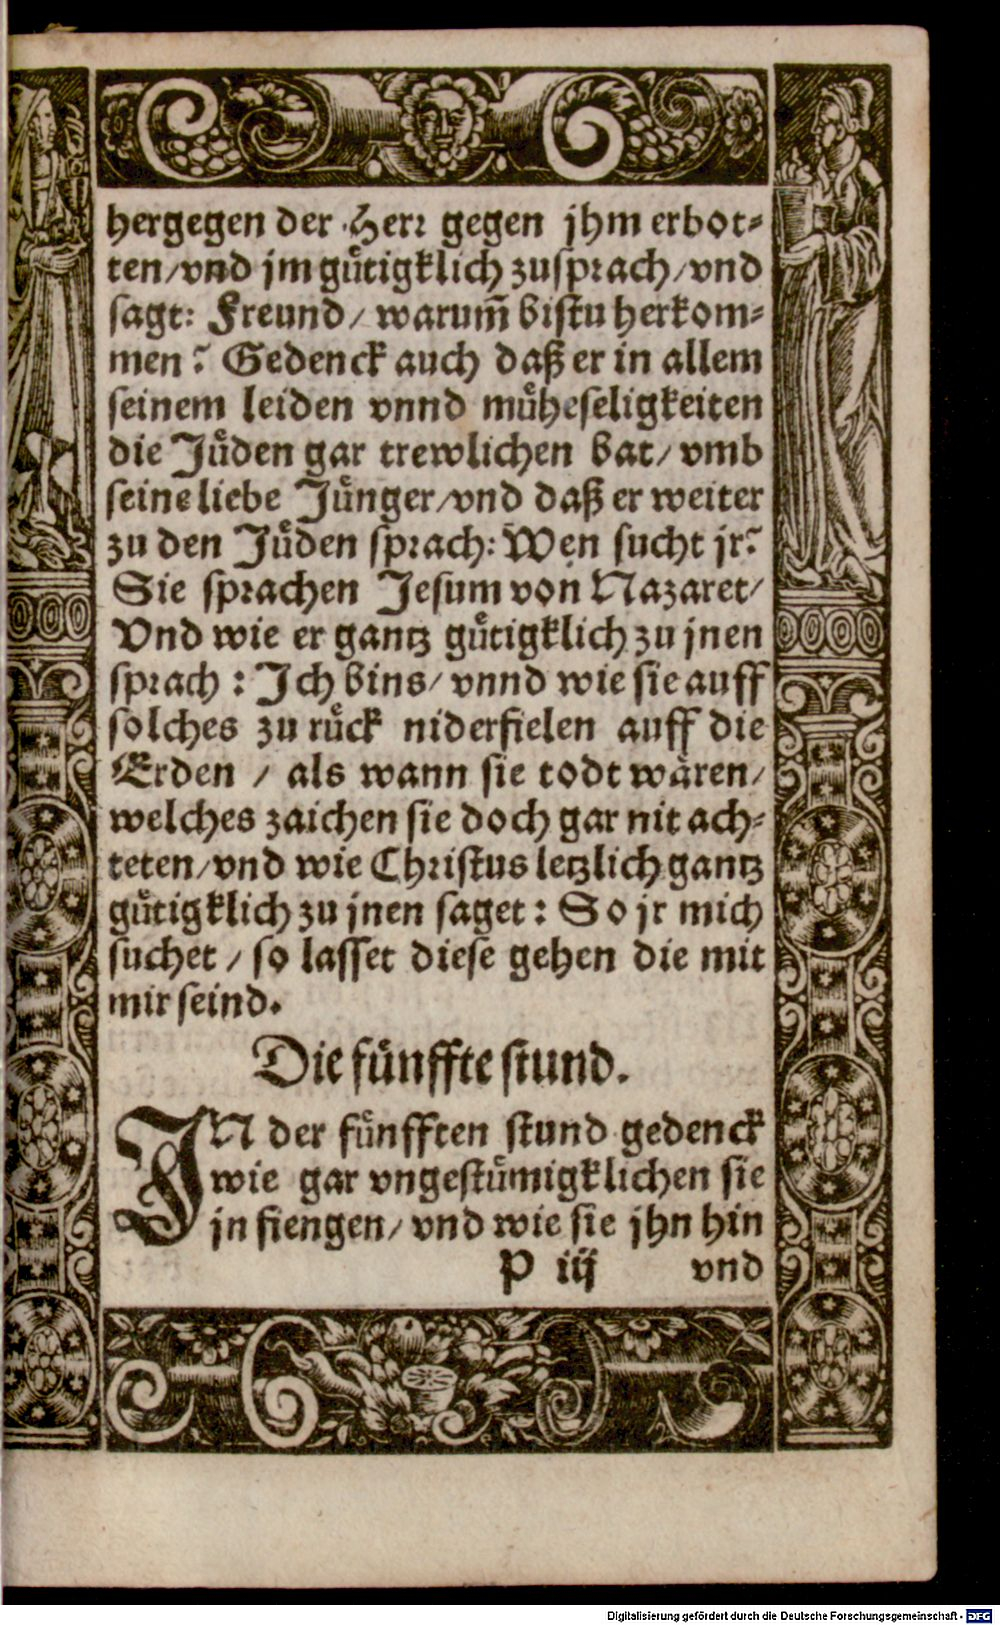 hergegen der Herr gegen jhm erbot⸗
ten/vnd jm guͤtigklich zusprach/vnd
sagt: Freund/ warum̃ bistu herkom⸗
men? Gedenck auch daß er in allem
seinem leiden vnnd muͤheseligkeiten
die Juͤden gar trewlichen bat/ vmb
seine liebe Juͤnger/vnd daß er weiter
zu den Juͤden sprach: Wen sucht jr?
Sie sprachen Jesum von Nazaret/
Vnd wie er gantz guͤtigklich zu jnen
sprach: Jch bins/ vnnd wie sie auff
solches zu ruͤck niderfielen auff die
Erden / als wann sie todt waͤren/
welches zaichen sie doch gar nit ach⸗
teten/vnd wie Christus letzlich gantz
guͤtigklich zu jnen saget: So jr mich
suchet / so lasset diese gehen die mit
mir seind.
Die fuͤnffte stund.
JN der fuͤnfften stund gedenck
wie gar vngestuͤmigklichen sie
jn fiengen/ vnd wie sie jhn hin
P iij vnd
Digitalisierung gefördert durch die Deutsche Forschungsgemeinschaft - DFG